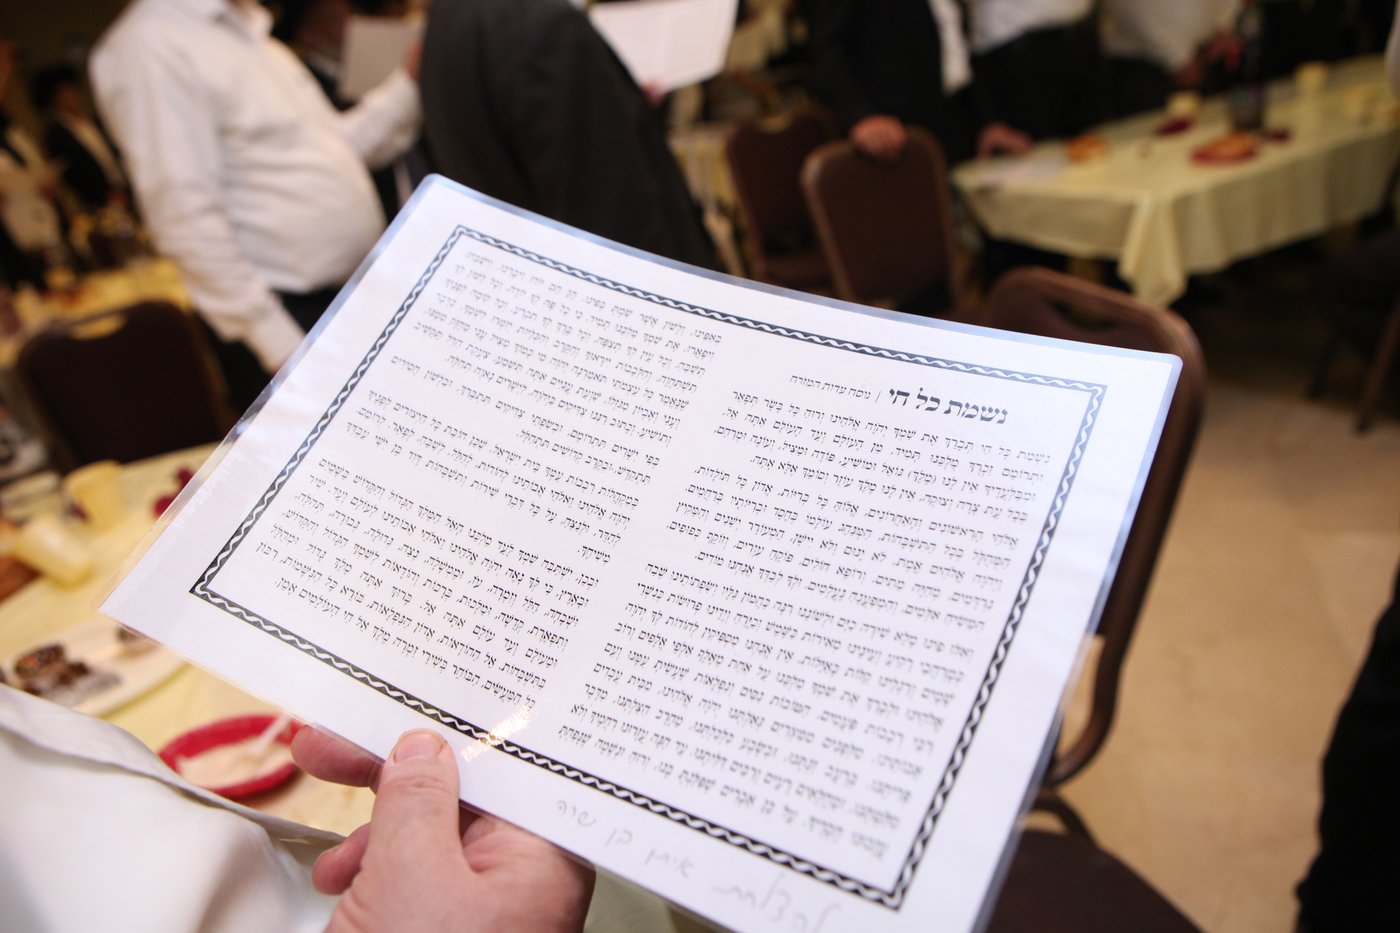 נשמת כל חי | נוסח עדות המזרח
נשמת כל חי תברך את שמך יהוה אלהינו ורוח כל בשר תפאר
ותרומם זכרך מלכנו תמיד, מן העולם ועד העולם אתה אל,
ומבלעדיך אין לנו (מלך) גואל ומושיע, פודה ומציל, ועונה ומרחם,
בכל עת צרה וצוקה, אין לנו מלך עוזר וסומך אלא אתה.
אלהי הראשונים והאחרונים, אלוה כל בריות, אדון כל תולדות,
המהלל בכל התשבחות, המנהג עולמו בחסד ובריותיו ברחמים.
ויהוה אלהים אמת, לא ינום ולא יישן, המעורר ישנים והמקיץ
נרדמים, מחיה מתים, ורופא חולים, פוקח עורים, וזוקף כפופים,
המשיח אלמים, והמפענח נעלמים, ולך לבדך אנחנו מודים.
ואלו פינו מלא שירה כים ולשוננו רנה כהמון גליו ושפתותינו שבח
כמרחבי רקיע ועינינו מאירות כשמש וכירח וידינו פרושות כנשרי
שמים ורגלינו קלות כאילות, אין אנחנו מספיקין להודות לך יהוה
אלהינו ולברך את שמך מלכנו על אחת מאלף אלפי אלפים ורוב
רבי רבבות פעמים, הטובות נסים ונפלאות שעשית עמנו ועם
אבותינו. מלפנים ממצרים גאלתנו יהוה אלהינו, מבית עבדים
פדיתנו, ברעב זנתנו, ובשבע כלכלתנו, מחרב הצלתנו, מדבר
מלטתנו, ומחלאים רעים ורבים דליתנו, עד הנה עזרונו רחמיך ולא
עזבונו חסדיך. על כן אברים שפלגת בנו, ורוח ונשמה שנפחת
באפינו, ולשון אשר שמת בפינו, הן הם יודו ויברכו, וישבחו,
ויפארו, את שמך מלכנו תמיד, כי כל פה לך יודה, וכל לשון לך
תשבח, וכל עין לך תצפה, וכל ברך לך תכרע, וכל קומה לפניך
תשתחוה, והלבבות ייראוך והקרב והכליות יזמרו לשמך, כדבר
שנאמר כל עצמתי תאמרנה יהוה מי כמוך מציל עני מחזק ממנו,
ועני ואביון מגוזלו, שועת עניים אתה תשמע, צעקת הדל תקשיב
ותושיע, וכתוב רננו צדיקים ביהוה, לישרים נאוה תהלה.
בפי ישרים תתרומם, ובשפתי צדיקים תתברך, ובלשון חסידים
תתקדש, ובקרב קדושים תתהלל.
במקהלות רבבות עמך בית ישראל, שכן חובת כל היצורים לפניך
יהוה אלהינו ואלהי אבותינו להודות, להלל, לשבח, לפאר, לרומם,
להדר, ולנצח, על כל דברי שירות ותשבחות דוד בן ישי עבדך
משיחך.
ובכן, ישתבח שמך לעד מלכנו האל המלך הגדול והקדוש בשמים
ובארץ, כי לך נאה יהוה אלהינו ואלהי אבותינו לעולם ועד, שיר
ושבחה, הלל וזמרה, עז, וממשלה, נצח, גדולה, גבורה, תהלה,
ותפארת, קדושה, ומלכות, ברכות והודאות לשמך הגדול והקדוש,
ומעולם ועד עולם אתה אל. ברוך אתה יהוה מלך גדול ומהולל
בתשבחות, אל ההודאות, אדון הנפלאות, בורא כל הנשמות, רבון
כל המעשים, הבוחר בשירי זמרה, מלך אל חי העולמים אמן.
להצלחת איתן בן שרה